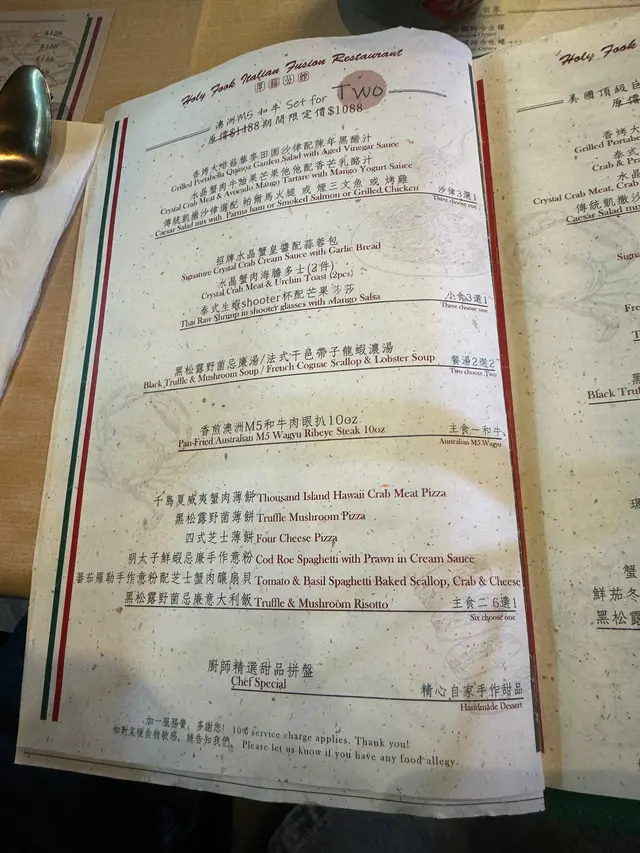 Holy Fook Italian Fusion Restaurant
澳洲M5 和牛 Set for Two
原價$1488期間限定價$1088
香烤大啡菇藜麥田園沙律配陳年黑醋汁
Grilled Portabella Quinoa Garden Salad with Aged Vinegar Sauce
水晶蟹肉牛油果芒果他他配香芒乳酪汁
Crystal Crab Meat & Avocado Mango Tartare with Mango Yogurt Sauce
傳統凱撒沙律選配 帕爾馬火腿 或 煙三文魚 或 烤雞
沙律3選1
Caesar Salad mix with Parma ham or Smoked Salmon or Grilled Chicken
Three choose one
招牌水晶蟹皇醬配蒜蓉包
Signature Crystal Crab Cream Sauce with Garlic Bread
水晶蟹肉海膽多士(2件)
Crystal Crab Meat & Urchin Toast (2pcs)
泰式生蝦shooter杯配芒果沙莎
小食3選1
Thai Raw Shrimp in shooter glasses with Mango Salsa
Three choose one
黑松露野菌忌廉湯/法式干邑帶子龍蝦濃湯
餐湯2選2
Black Truffle & Mushroom Soup / French Cognac Scallop & Lobster Soup
Two choose Two
香煎澳洲M5和牛肉眼扒10oz
主食一和牛
Pan-Fried Australian M5 Wagyu Ribeye Steak 10oz
Australian M5 Wagyu
千島夏威夷蟹肉薄餅 Thousand Island Hawaii Crab Meat Pizza
黑松露野菌薄餅 Truffle Mushroom Pizza
四式芝士薄餅 Four Cheese Pizza
明太子鮮蝦忌廉手作意粉 Cod Roe Spaghetti with Prawn in Cream Sauce
蕃茄羅勒手作意粉配芝士蟹肉釀扇貝 Tomato & Basil Spaghetti Baked Scallop, Crab & Cheese
黑松露野菌忌廉意大利飯 Truffle & Mushroom Risotto
主食二 6選1
Six choose one
廚師精選甜品拼盤
Chef Special
精心自家手作甜品
Handmade Dessert
加一服務費，多謝您! 10% service charge applies. Thank you!
如對某種食物敏感，請告知我們。 Please let us know if you have any food allegy.
Holy Fook
美國頂級
Grilled Portabe
泰式
Crab & P
Crystal Crab Meat, Crab
傳統凱撒沙
Caesar Salad mix
Signa
Fre
Black Truf
蟹
鮮茄冬
黑松露